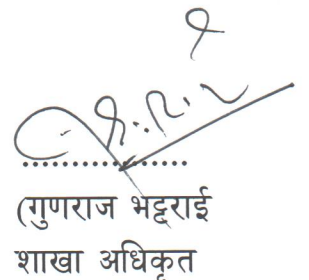 (गुणराज भट्टराई
शाखा अधिकृत